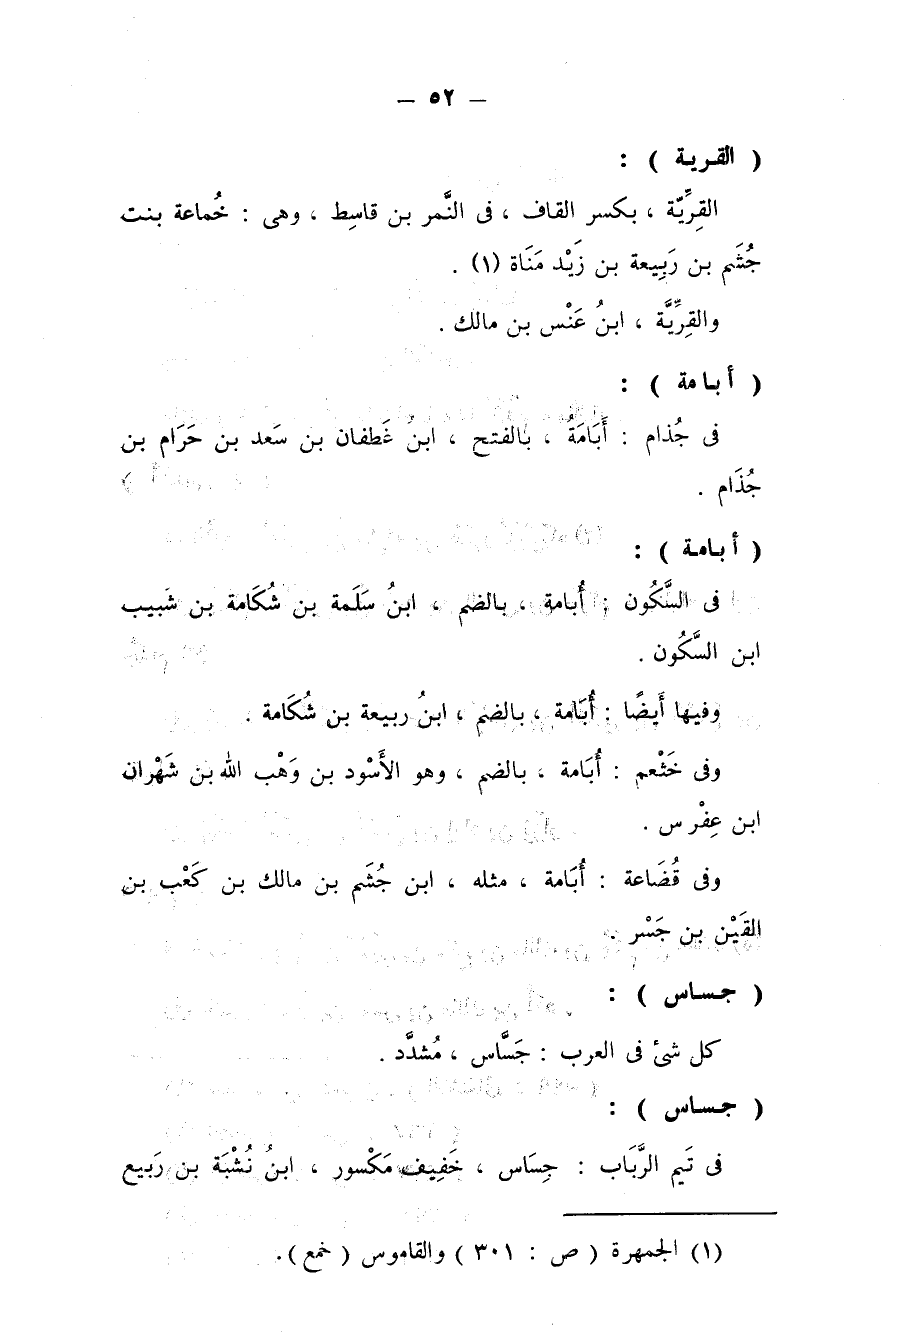 — ٥٢ —
( القرية ) :
القِرِّيّة ، بكسر القاف ، فى النَّمر بن قاسِط ، وهى : خُماعة بنت
جُشَم بن رَبِيعة بن زَيْد مَنَاة (١) .
والقِرِّيَّة ، ابنُ عَنْس بن مالك .
( أبامة ) :
فى جُذام : أَبَامَةُ ، بالفتح ، ابنُ غَطفان بن سَعد بن حَرَام بن
جُذَام .
( أبامة ) :
فى السَّكُون : أُبامة ، بالضم ، ابنُ سَلَمة بن شُكَامة بن شَبيب
ابن السَّكُون .
وفيها أَيضًا : أُبَامة ، بالضم ، ابنُ ربيعة بن شُكَامة .
وفى خَثْعم : أُبَامة ، بالضم ، وهو الأَسْود بن وَهْب الله بن شَهْران
ابن عِفْرس .
وفى قُضَاعة : أُبَامة ، مثله ، ابن جُشَم بن مالك بن كَعْب بن
القَيْن بن جَسْر .
( جساس ) :
كل شئ فى العرب : جَسَّاس ، مُشدَّد .
( جساس ) :
فى تَيم الرَّبَاب : جِسَاس ، خَفِيف مَكْسور ، ابنُ نُشْبَة بن رَبيع
(١) الجمهرة ( ص : ٣٠١ ) والقاموس ( خمع ) .